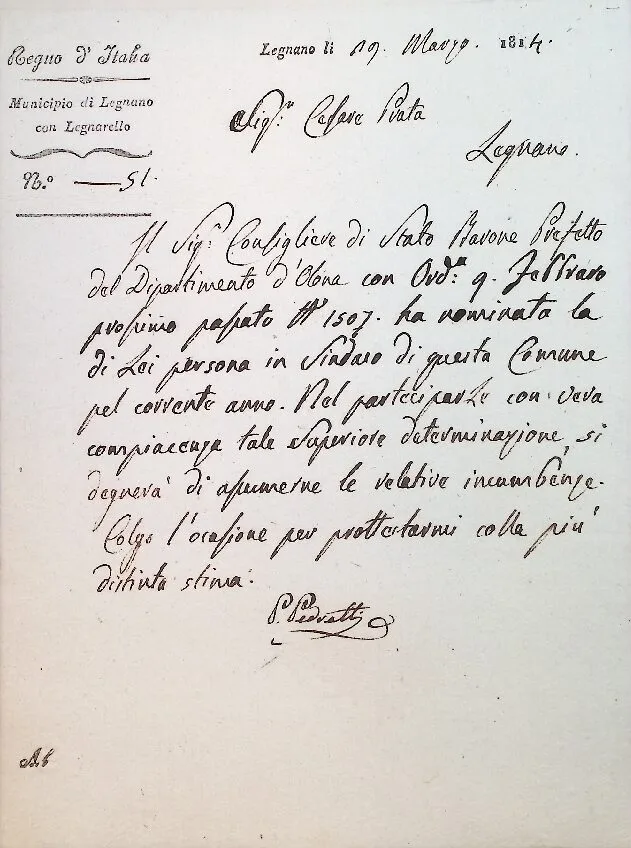 Regno d'Italia
Municipio di Legnano
con Legnarello
N.º 51.
Legnano li 19. Marzo. 1814.
Sig.r Cesare Prata
Legnano.
Il Sig.r Consigliere di Stato Barone Prefetto
del Dipartimento d'Olona con Ord.a 9. Febbraro
prossimo passato N.º 1507. ha nominata la
di Lei persona in Sindaco di questa Comune
pel corrente anno. Nel parteciparLe con vera
compiacenza tale Superiore determinazione, si
degnerà di assumerne le relative incumbenze.
Colgo l'ocasione per prottestarmi colla più
distinta stima.
P. Pedretti